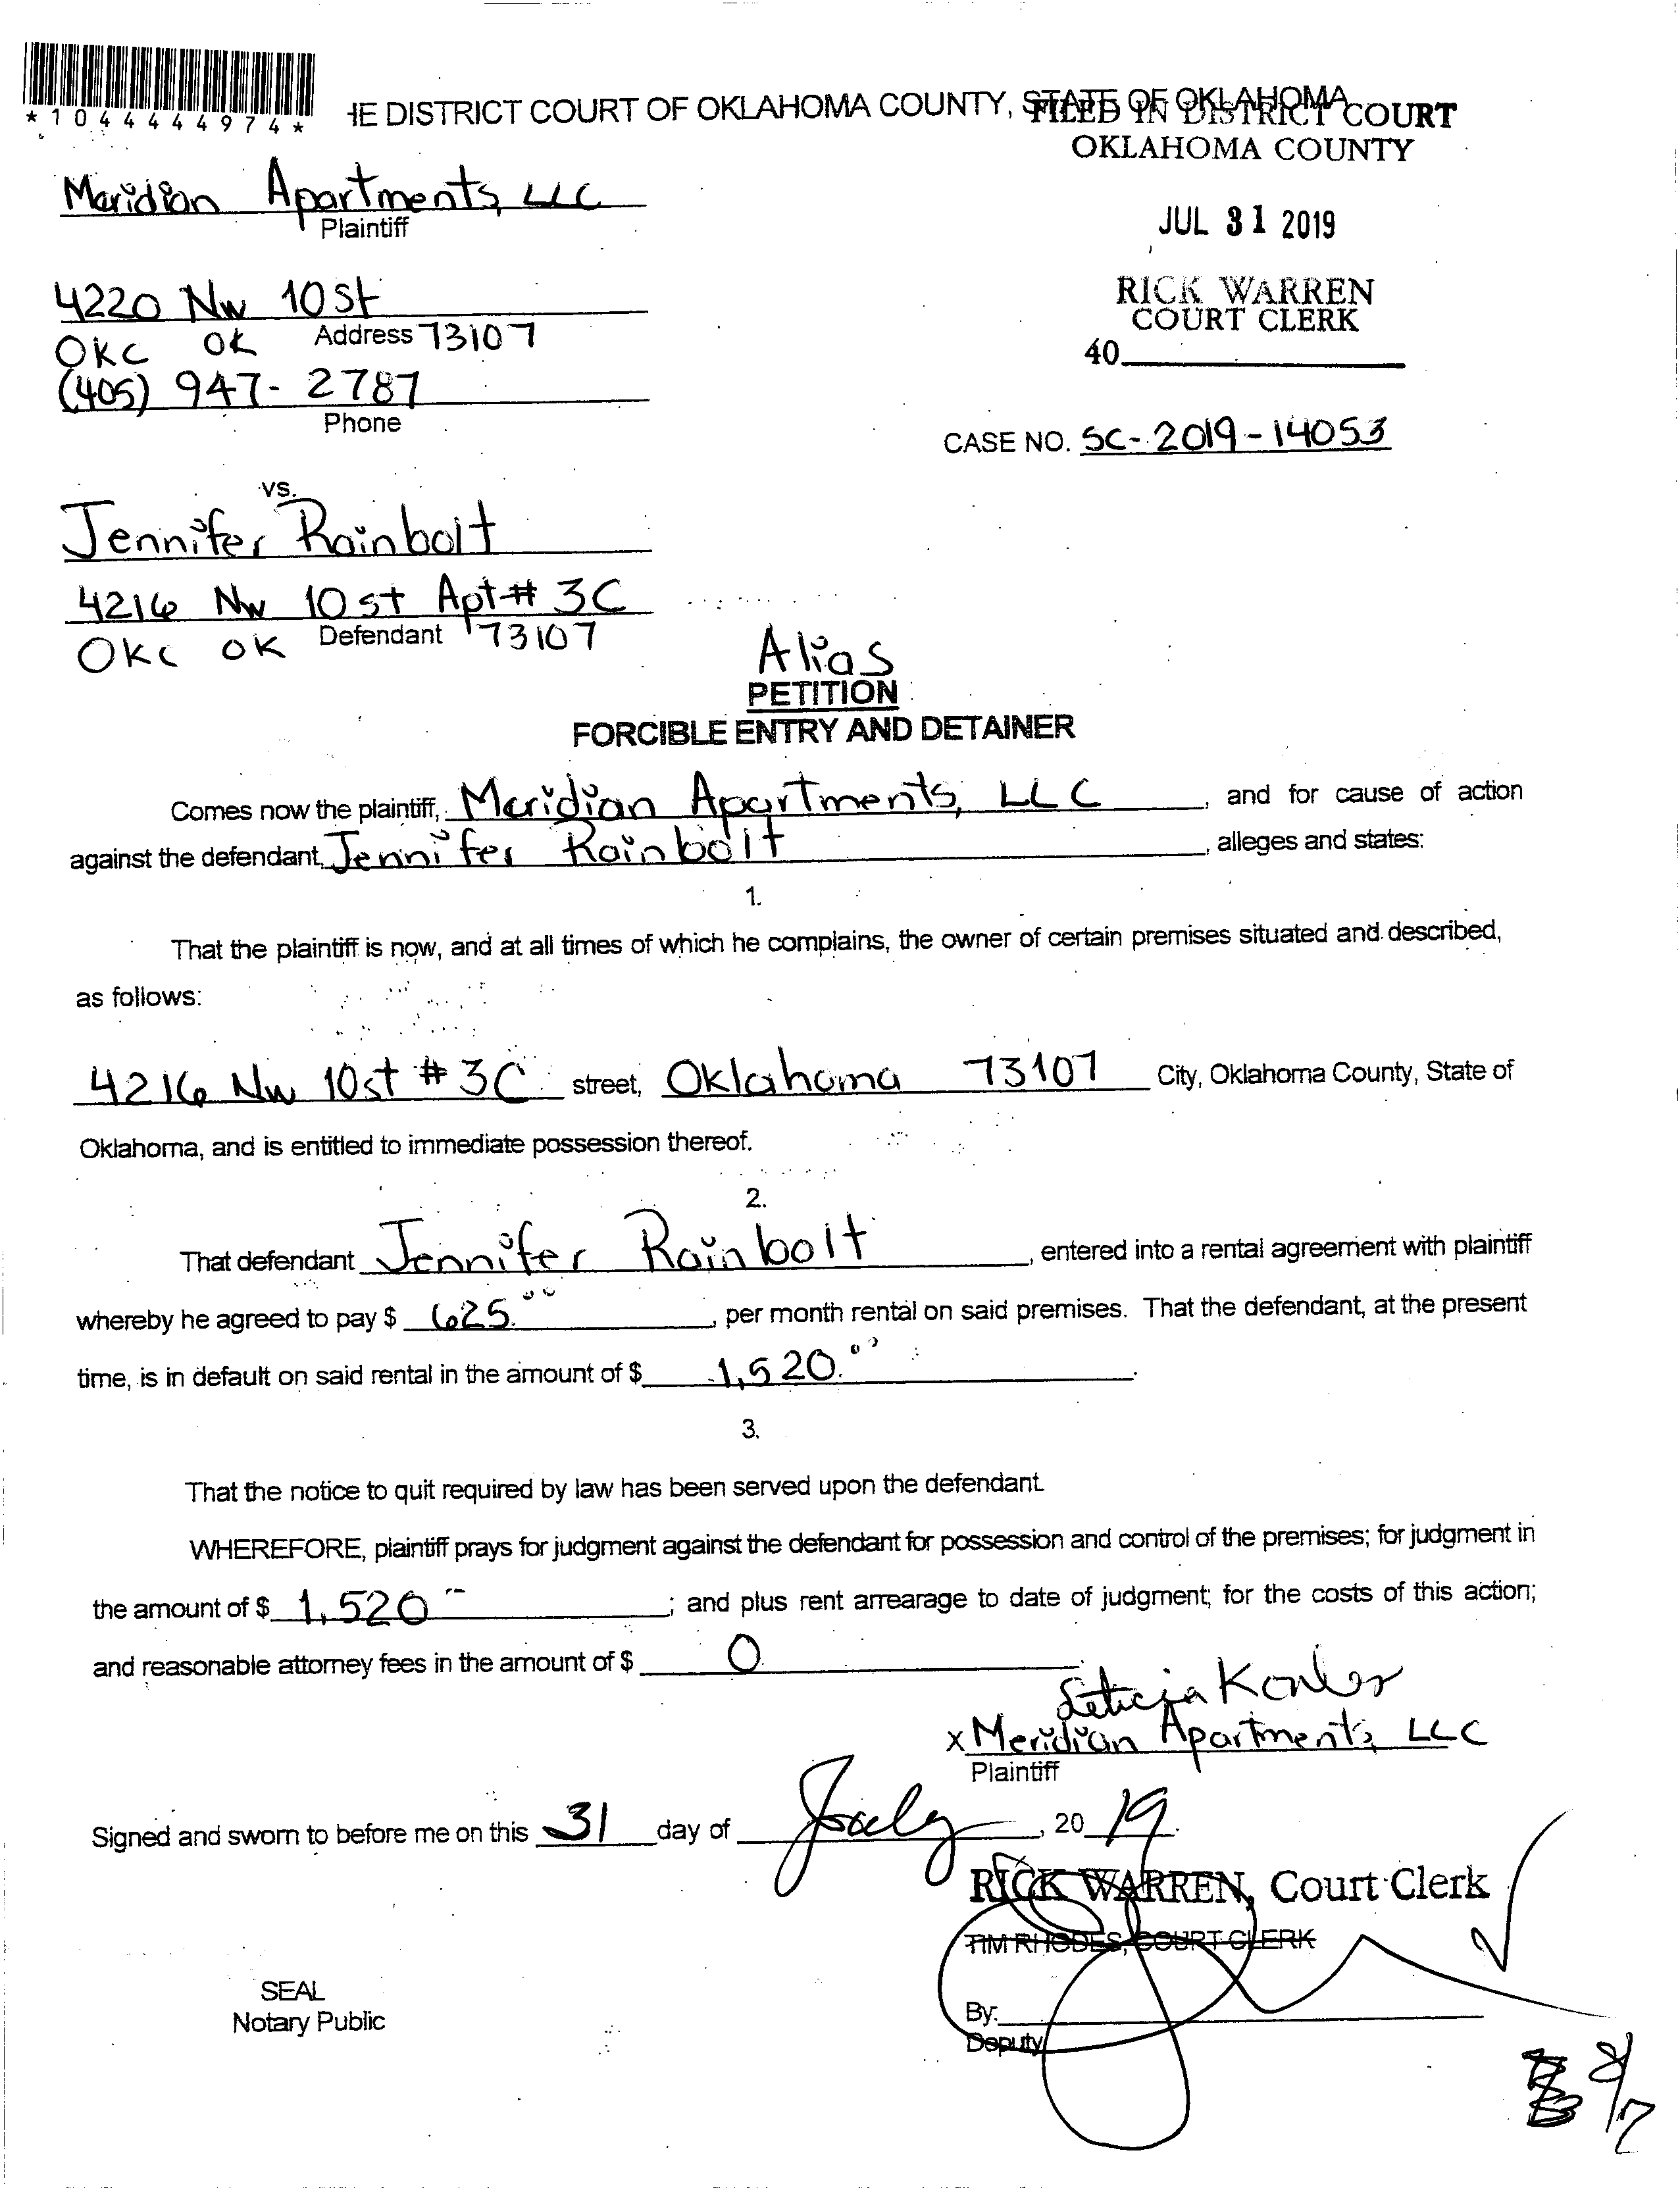 *1044444974*
HE DISTRICT COURT OF OKLAHOMA COUNTY, STATE OF OKLAHOMA
FILED IN DISTRICT COURT
OKLAHOMA COUNTY
JUL 31 2019
RICK WARREN
COURT CLERK
40
Meridian Apartments, LLC
Plaintiff
4220 NW 10 St
Address
OKC OK 73107
(405) 947-2787
Phone
CASE NO. SC-2019-14053
vs.
Jennifer Rainbolt
4216 NW 10 st Apt# 3C
Defendant
OKC OK 73107
Alias
PETITION
FORCIBLE ENTRY AND DETAINER
Comes now the plaintiff, Meridian Apartments, LLC, and for cause of action
against the defendant, Jennifer Rainbolt, alleges and states:
1.
That the plaintiff is now, and at all times of which he complains, the owner of certain premises situated and described,
as follows:
4216 NW 10st #3C street, Oklahoma 73107 City, Oklahoma County, State of
Oklahoma, and is entitled to immediate possession thereof.
2.
That defendant Jennifer Rainbolt, entered into a rental agreement with plaintiff
whereby he agreed to pay $ 625.00, per month rental on said premises. That the defendant, at the present
time, is in default on said rental in the amount of $ 1,520.00.
3.
That the notice to quit required by law has been served upon the defendant.
WHEREFORE, plaintiff prays for judgment against the defendant for possession and control of the premises; for judgment in
the amount of $ 1,520 --; and plus rent arrearage to date of judgment; for the costs of this action;
and reasonable attorney fees in the amount of $ 0.
Leticia
x Meridian Apartments, LLC
Plaintiff
Signed and sworn to before me on this 31 day of July, 2019.
RICK WARREN, Court Clerk
TIM RHODES, COURT CLERK
SEAL
Notary Public
By:
Deputy
8/7